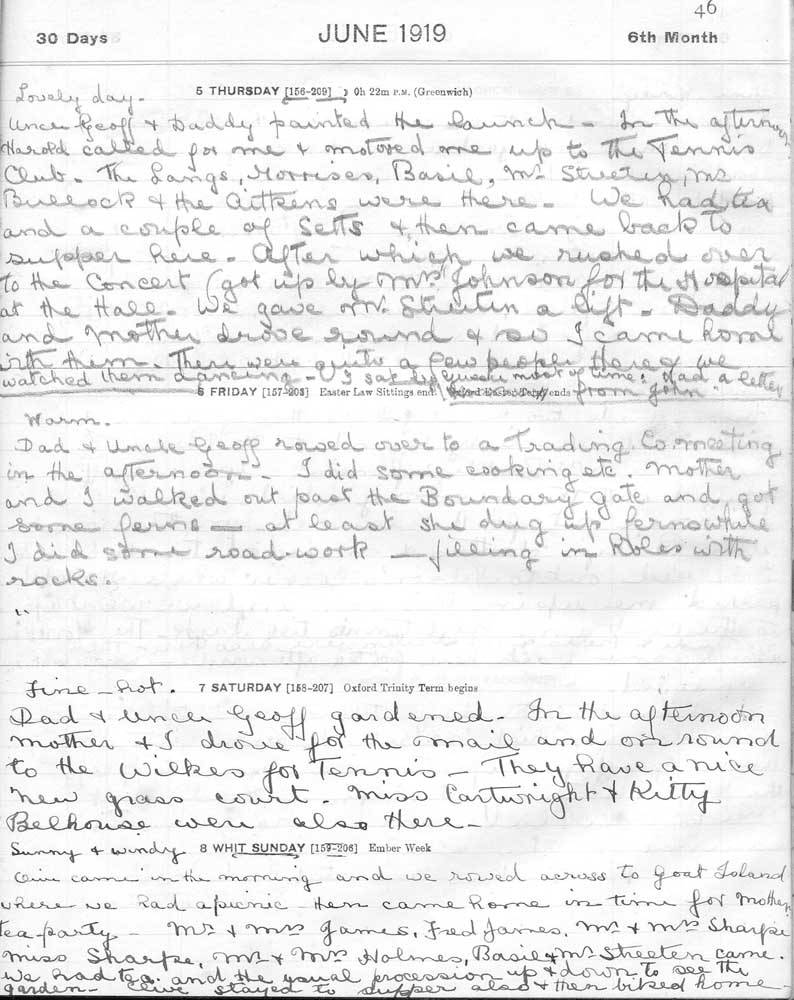 46
30 Days JUNE 1919 6th Month
Lovely day. 5 THURSDAY [156-209] ☽ 0h 22m P.M. (Greenwich)
Uncle Geoff & Daddy painted the launch – In the afternoon
Harold called for me & motored me up to the Tennis
Club. The Langs, Morrises, Basil, Mr Streeten, Mr
Bullock & the Aitkens were there – We had tea
and a couple of setts & then came back to
supper here. After which we rushed over
to the Concert (got up by Mrs Johnson for the Hospital
at the Hall. We gave Mr. Streeten a lift. Daddy
and Mother drove round & so I came home
with them. There were quite a few people there & we
watched them dancing – I sat by most of time. Had a letter
6 FRIDAY [157-208] Easter Law Sittings end. Oxford Easter Term ends from John
Warm.
Dad & Uncle Geoff rowed over to a Trading Co. meeting
in the afternoon – I did some cooking etc. Mother
and I walked out past the Boundary gate and got
some ferns – at least she dug up ferns while
I did some road-work – filling in holes with
rocks.
Fine – hot. 7 SATURDAY [158-207] Oxford Trinity Term begins
Dad & Uncle Geoff gardened – In the afternoon
Mother & I drove for the mail and on round
to the Wilkes for Tennis – They have a nice
new grass court. Miss Cartwright & Kitty
Belhouse were also there –
Sunny & windy 8 WHIT SUNDAY [159-206] Ember Week
Clive came in the morning and we rowed across to Goat Island
where we had a picnic – then came home in time for Mother
tea-party – Mr & Mrs James, Fred James, Mr & Mrs Sharpe
Miss Sharpe, Mr & Mrs Holmes, Basil & Mr Streeten came.
We had tea and the usual procession up & down to see the
garden – Clive stayed to supper also & then biked home –